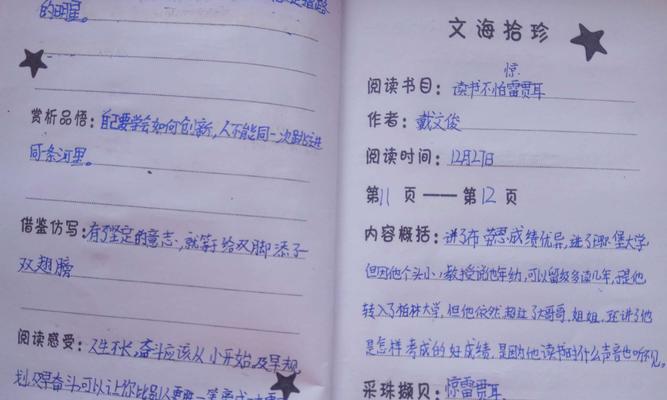 的明星。
赏析品悟：自己要学会如何创新，人不能同一次跳进
同条河里。
借鉴仿写：有了坚定的意志，就等于给双脚添了一
双翅膀
阅读感受：人生不长，奋斗应该从小开始，及早规
划，及早奋斗，可以让你比别人
文海拾珍
惊
阅读书目：读书不怕雷贯耳
作者：戴文俊
阅读时间：12月27日
第11页——第12页
内容概括：讲了布劳恩成绩优异，进了堡大学
但因他个头小，教授说他年幼，可以留级多读几年，于是他
转入了柏林大学，但他依然超过了大哥哥，姐姐，还讲了他
是怎样考成的好成绩，是因为他读书时什么声音也听不见。
采珠撷贝：惊雷贯耳.